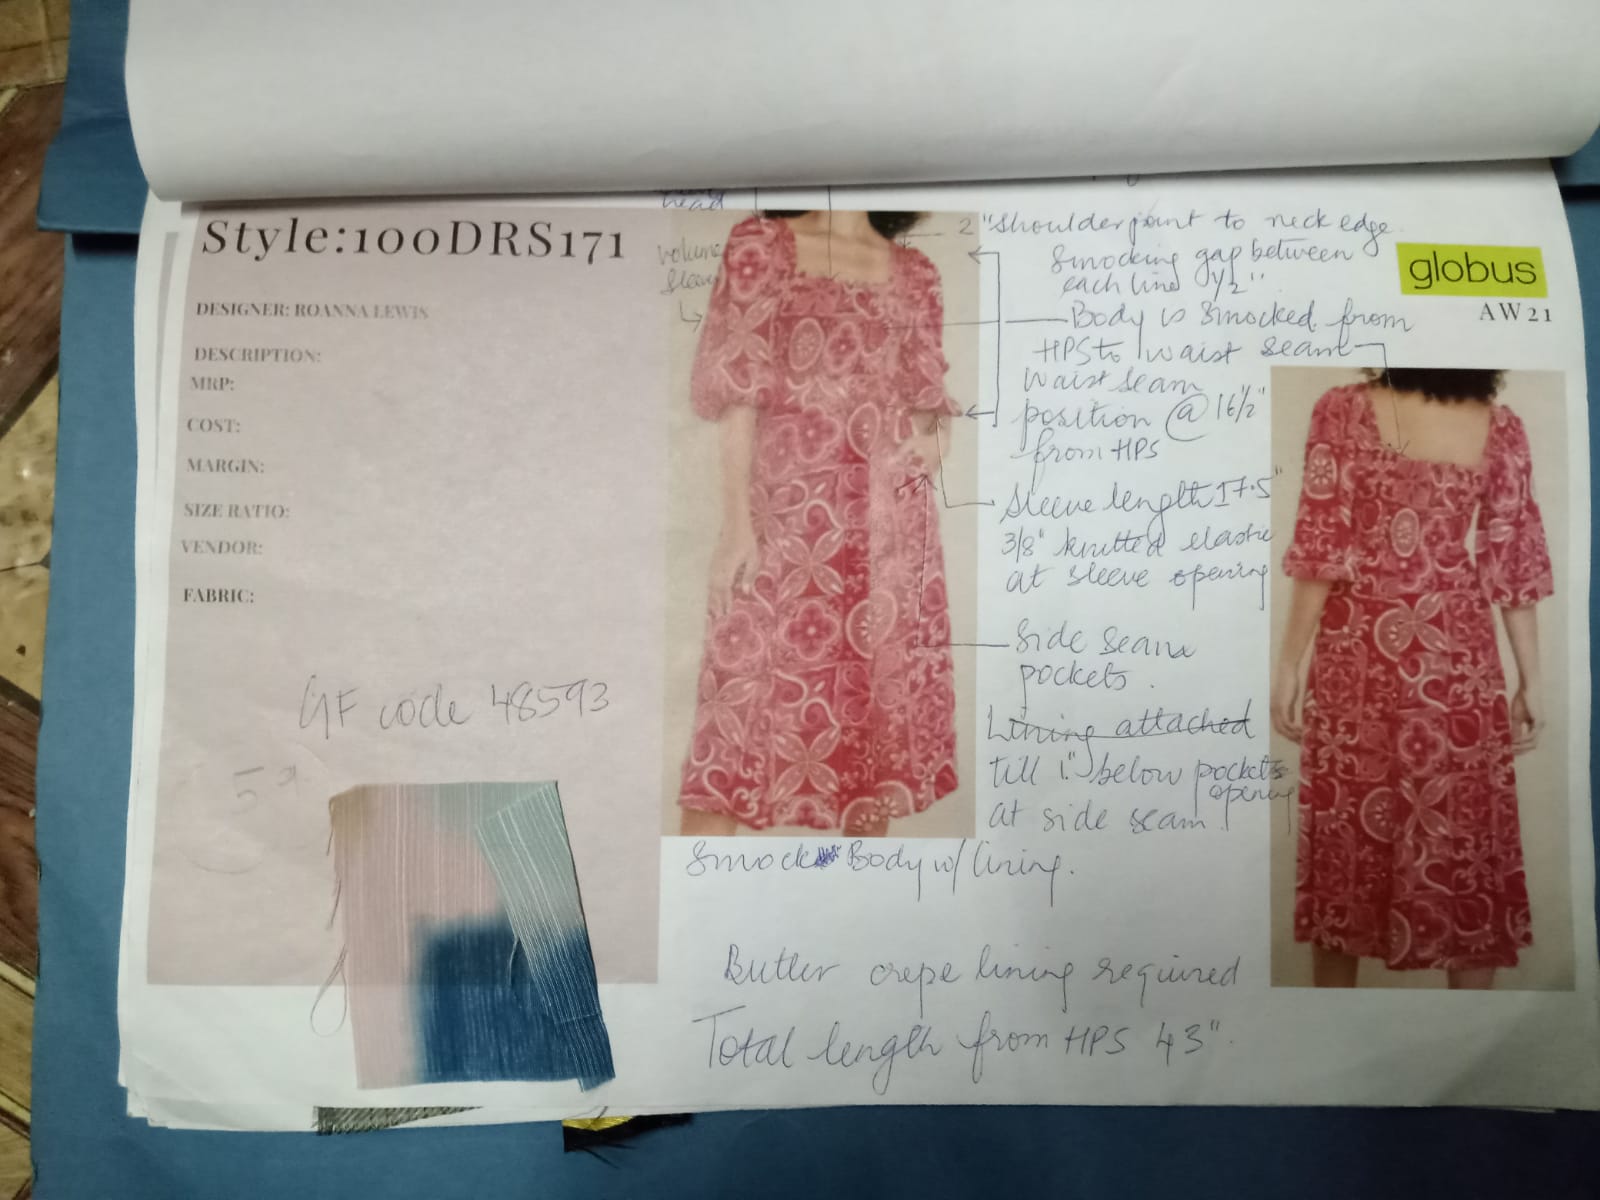 head
Style:100DRS171
volume
sleeve
2" shoulder point to neck edge.
Smocking gap between
each line 1/2".
globus
AW21
DESIGNER: ROANNA LEWIS
Body is Smocked from
HPS to waist seam
waist seam
position @ 16 1/2"
from HPS
DESCRIPTION:
MRP:
COST:
MARGIN:
SIZE RATIO:
VENDOR:
FABRIC:
Sleeve length 17.5"
3/8" knitted elastic
at sleeve opening
Side seam
pockets.
GF code 48593
Lining attached
till 1" below pockets
opening
at side seam.
Smock Body w/ lining.
Butter crepe lining required
Total length from HPS 43".